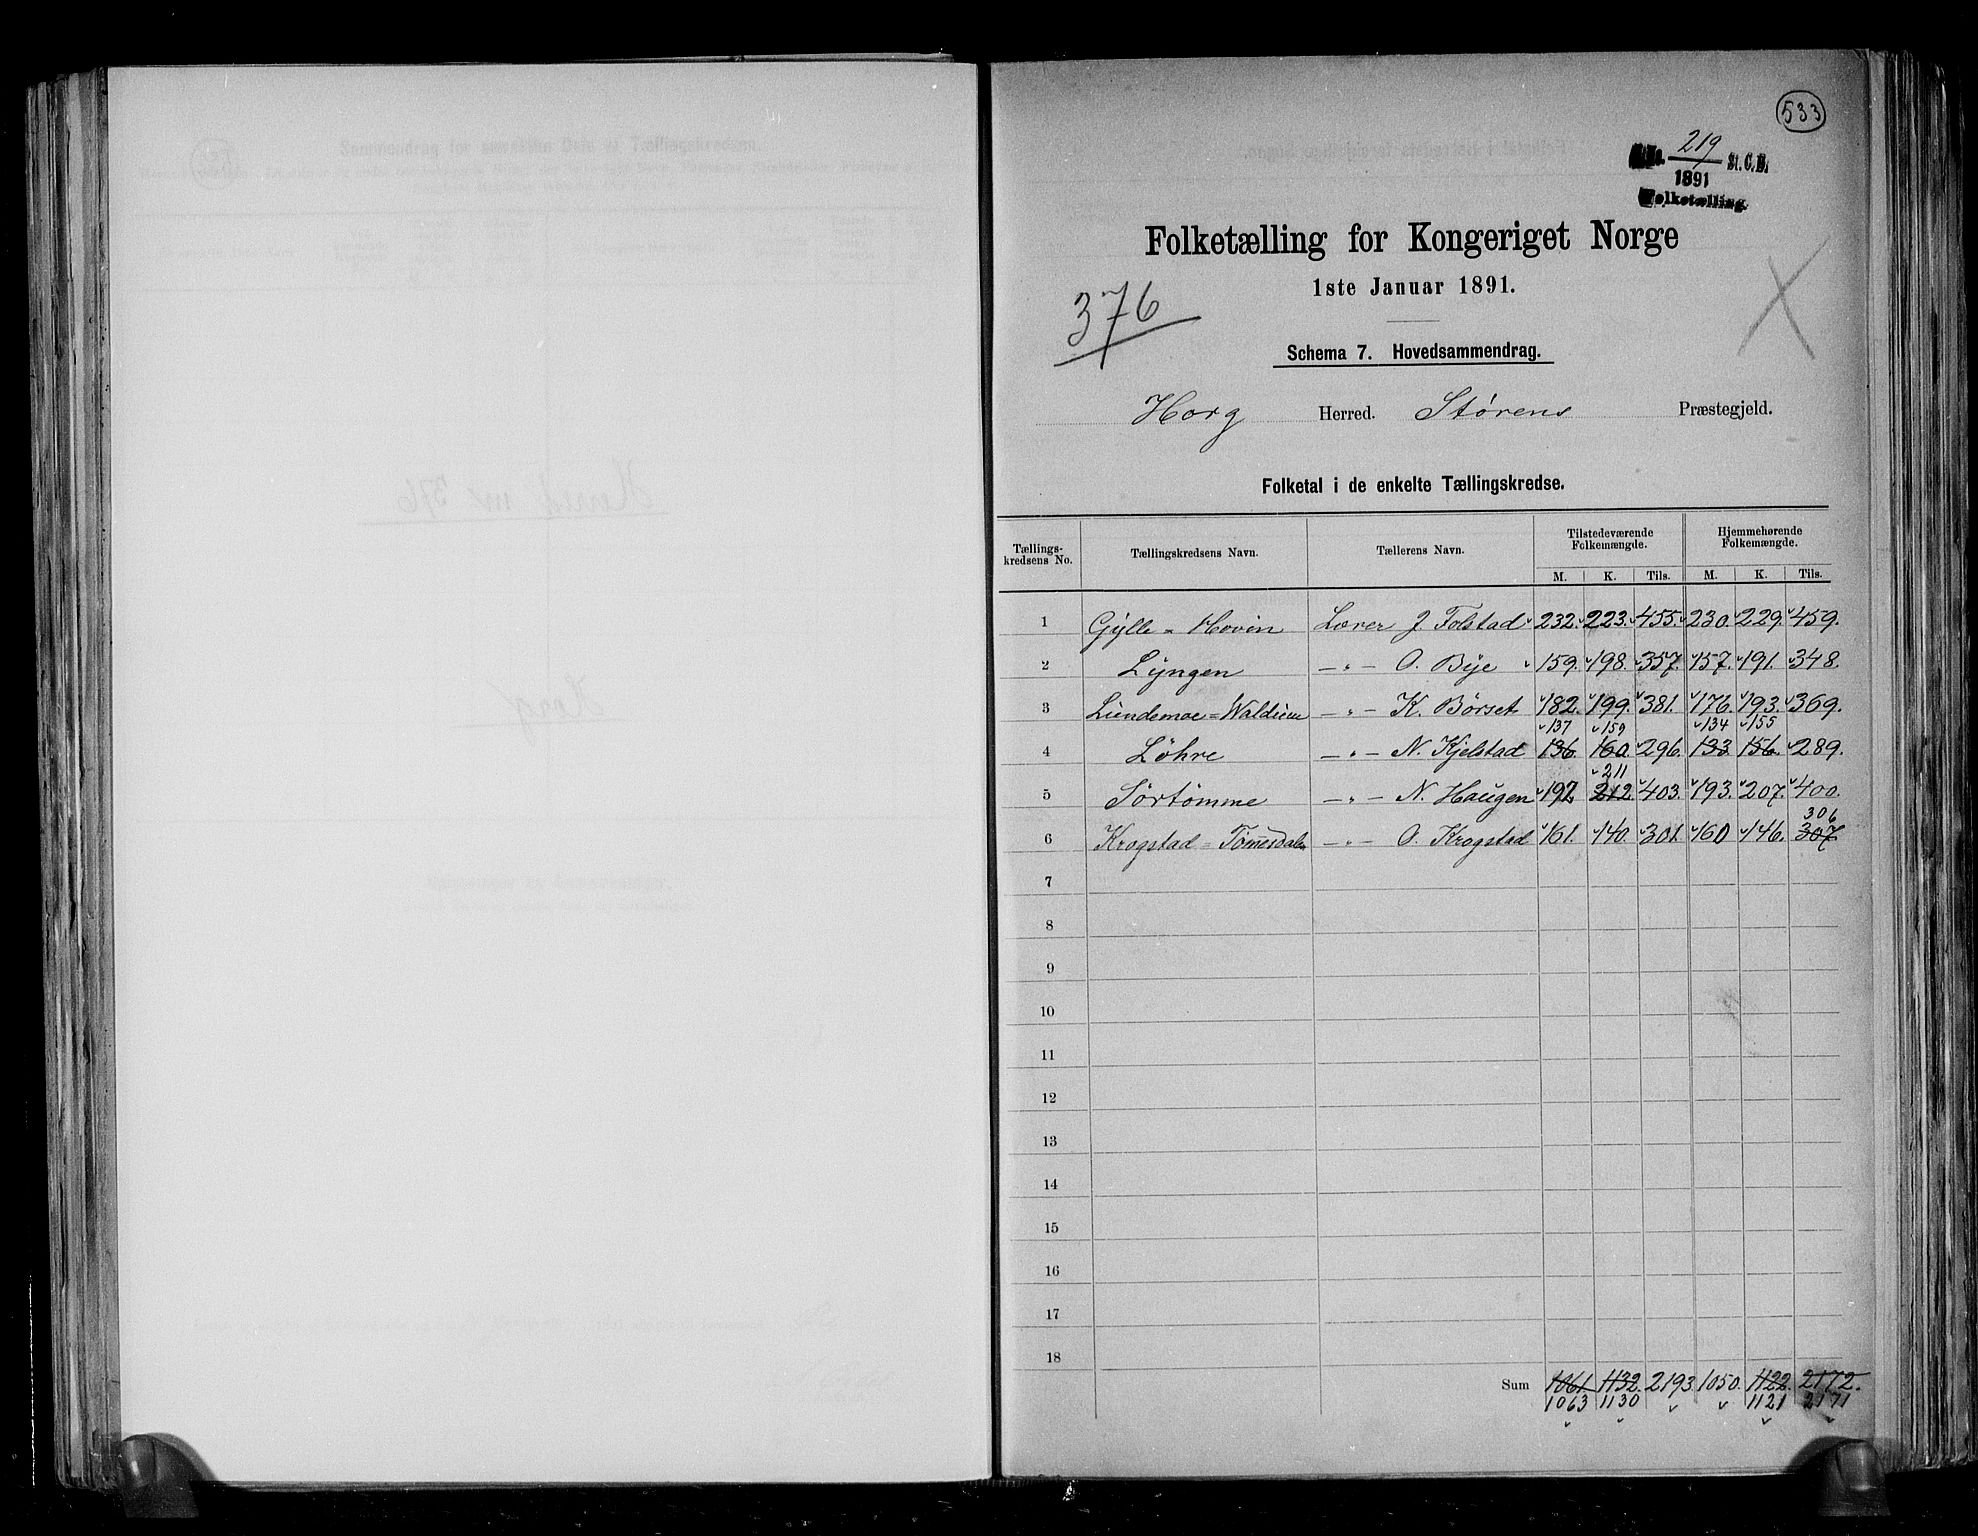 533
219
No. St. C. B.
1891
Folketælling.
Folketælling for Kongeriget Norge
1ste Januar 1891.
376
Schema 7. Hovedsammendrag.
Horg Herred. Størens Præstegjeld.
Folketal i de enkelte Tællingskredse.
Tællings-kredsens No. Tællingskredsens Navn. Tællerens Navn. Tilstedeværende Folkemængde. Hjemmehørende Folkemængde.
M. K. Tils. M. K. Tils.
1 Gylle = Hovin Lærer J. Folstad 232. 223. 455. 230. 229. 459.
2 Lyngen —"— O. Bye 159. 198. 357. 157. 191. 348.
3 Lundemoe = Waldum —"— K. Børset 182. 199. 381. 176. 193. 369.
137 159 134 155
4 Løhre —"— N. Kjelstad 136. 160. 296. 133. 156. 289.
211
5 Sørtømme —"— N. Haugen 192. 212. 403. 193. 207. 400.
306
6 Krogstad = —"— O. Krogstad 161. 140. 301. 160 146. 307
7
8
9
10
11
12
13
14
15
16
17
18
Sum 1061. 1132. 2193. 1050. 1122. 2172.
1063 1130 1121 2171